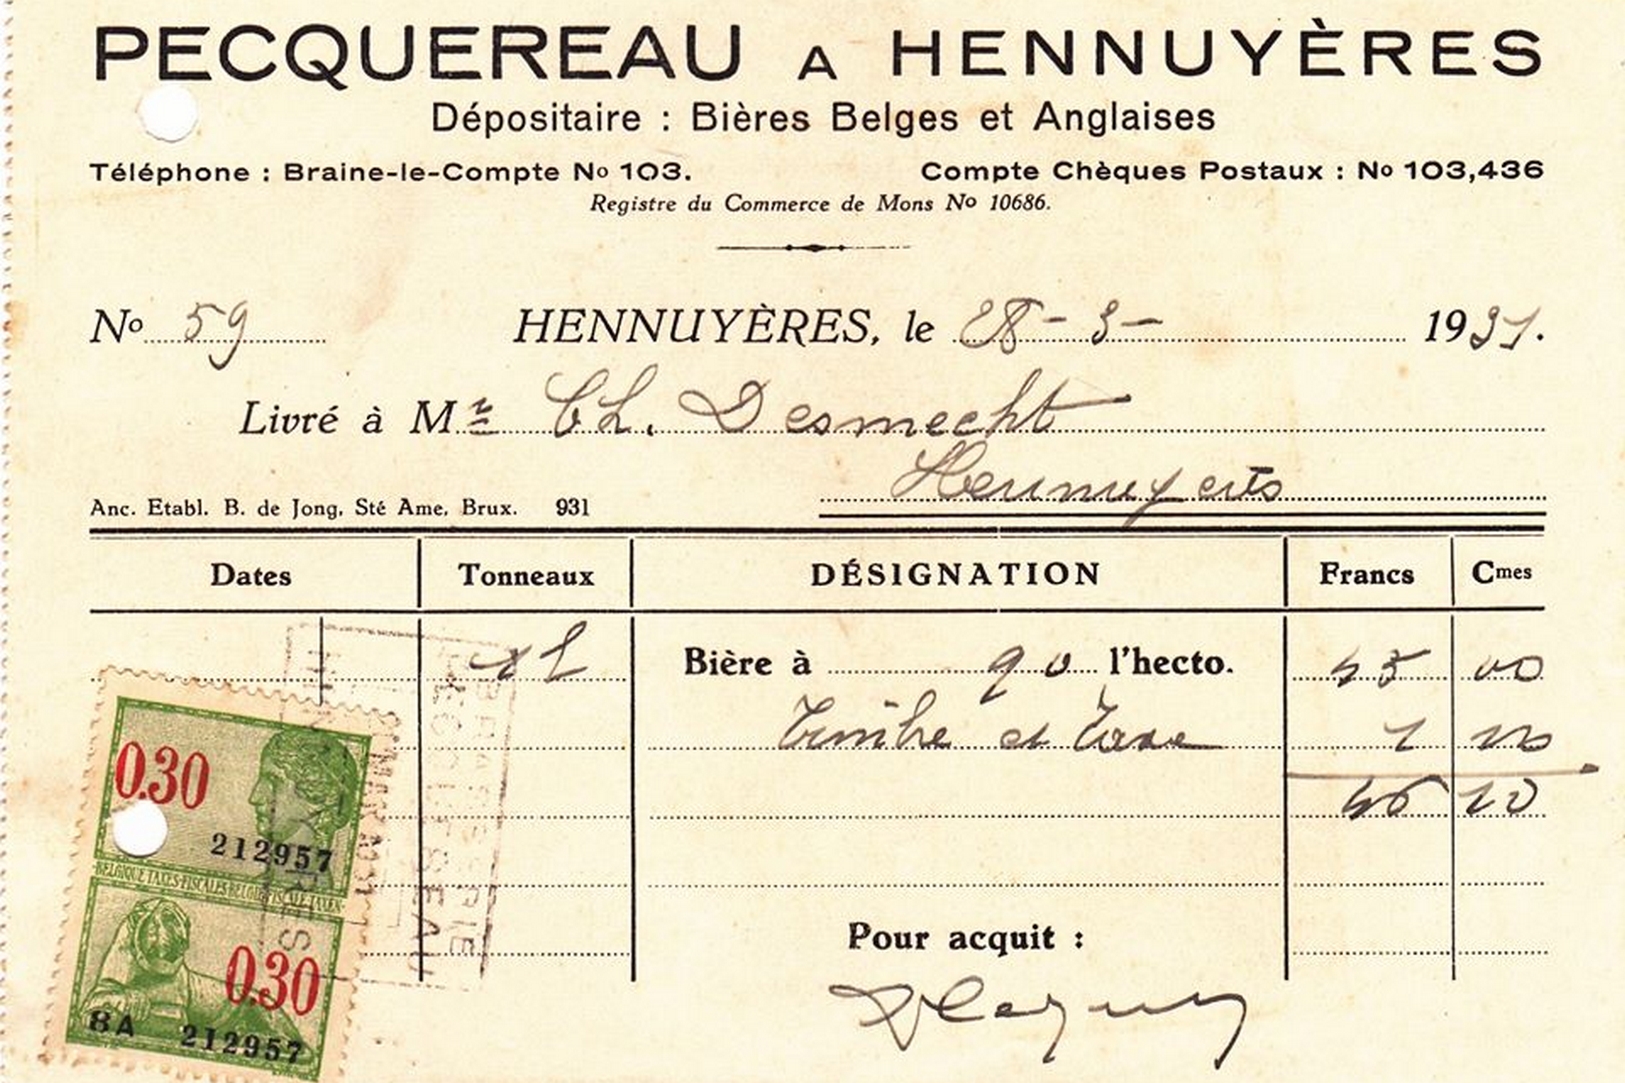 PECQUEREAU A HENNUYÈRES
Dépositaire : Bières Belges et Anglaises
Téléphone : Braine-le-Compte No 103. Compte Chèques Postaux : No 103,436
Registre du Commerce de Mons No 10686.
No 59 HENNUYÈRES, le 28-3- 1931.
Livré à Mr Ch. Desmecht
Hennuyères
Anc. Etabl. B. de Jong, Sté Ame, Brux. 931
Dates Tonneaux DÉSIGNATION Francs Cmes
Bière à 90 l'hecto. 45 00
Timbre et Taxe 1
46
0.30
212957
BELGIQUE TAXES FISCALES BELGIE FISCALE TAXEN
0.30
8A 212957
BRASSERIE
PECQUEREAU
HENNUYÈRES
Pour acquit :